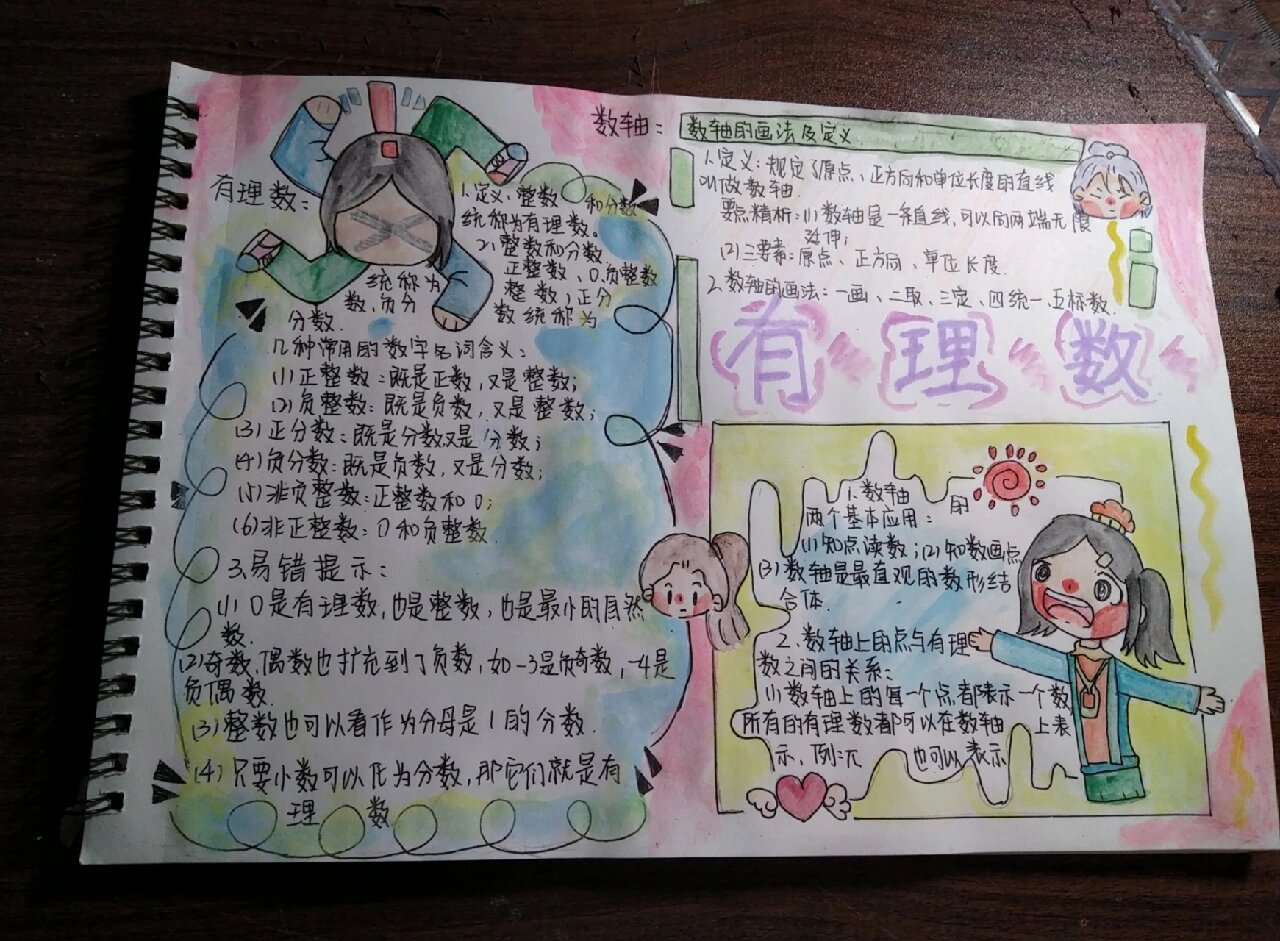 有理数：
1.定义：整数 和分数
统称为有理数。
2）整数和分数
正整数、0、负整数
统称为 整数，正分
数、负分 数统称为
分数．
几种常用的数学名词含义：
(1)正整数：既是正数，又是整数；
(2)负整数：既是负数，又是整数；
(3)正分数：既是分数又是分数；
(4)负分数：既是负数，又是分数；
(5)非负整数：正整数和0；
(6)非正整数：0和负整数．
3.易错提示：
(1) 0是有理数，也是整数，也是最小的自然
数．
(2)奇数、偶数也扩充到了负数，如-3是负奇数，-4是
负偶数．
(3)整数也可以看作为分母是1的分数．
(4)只要小数可以化为分数，那它们就是有
理 数．
数轴：
数轴的画法及定义
1.定义：规定了原点、正方向和单位长度的直线
叫做数轴．
要点精析：(1)数轴是一条直线，可以向两端无限
延伸；
(2)三要素：原点、正方向、单位长度．
2.数轴的画法：一画、二取、三定、四统一、五标数．
有理数
1.数轴 的
两个基本应用：
(1)知点读数；(2)知数画点
(3)数轴是最直观的数形结
合体．
2.数轴上的点与有理
数之间的关系：
(1)数轴上的每一个点都表示一个数
所有的有理数都可以在数轴 上表
示，例：π 也可以表示